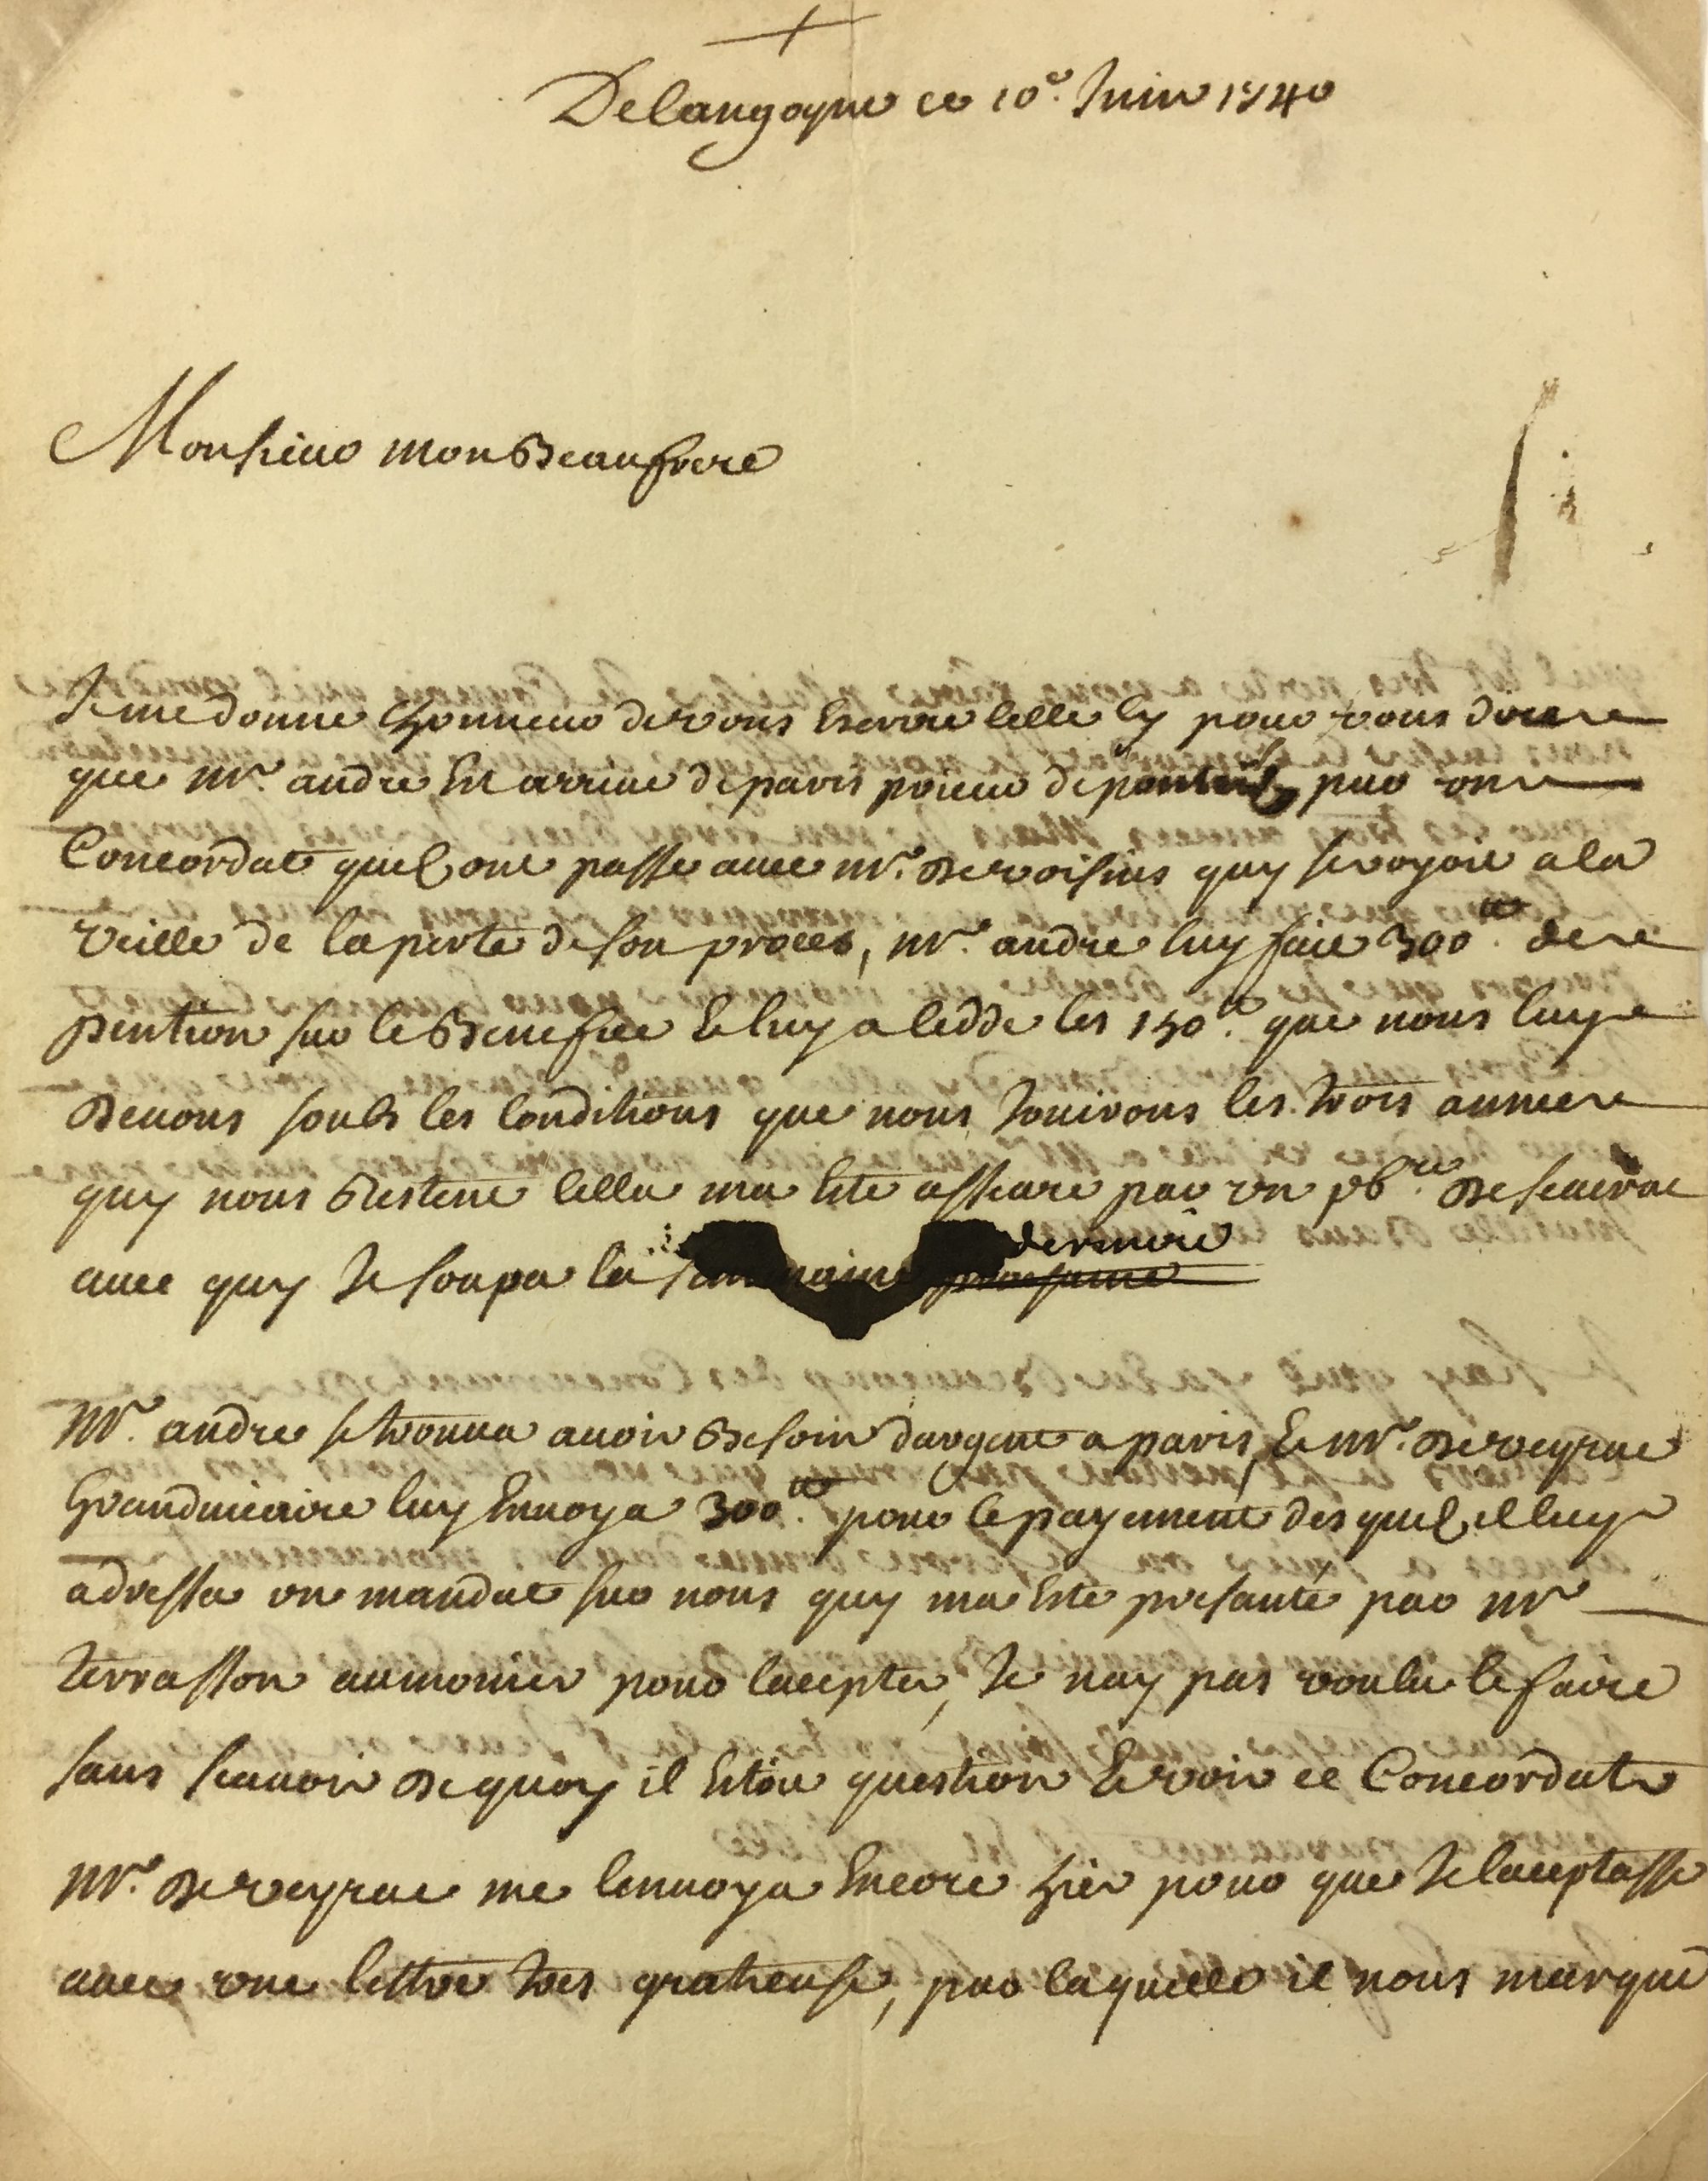 Delangogne ce 10e. Juin 1740
Monsieur mon Beaufrere
Je me donne lhonneur de vous Escrire Celle Cy pour vous dire
que Mr. andre Est arrive de paris prieur de par un
Concordat quil ont passe avec Mr. De voisins quy se voyoit a la
veille de la perte de son proces, Mr. andre luy fait 300tt. de
pention sur le Benefice Et luy a Cedde les 150tt. que nous luy
Devons souls les Conditions que nous Jouirons les trois annees
quy nous Restent Cella ma Este asseure par un pbre. De
avec quy Je soupa la semaine derniere
Mr. andre se trouva avoir Besoin dargent a paris, Et Mr. De veyrac
Grandvicaire luy Envoya 300tt. pour le payement des quels il luy
adressa un mandat sur nous quy ma Este presanté par Mr
terrasson aumonier pour lacepter, Je nay pas voulu le faire
sans scavoir De quoy il Estoit question Et voir ce Concordat
Mr. De veyrac me lenvoya Encore hier pour que Je laceptasse
avec une lettre tres gratieuse, par laquelle il nous marque